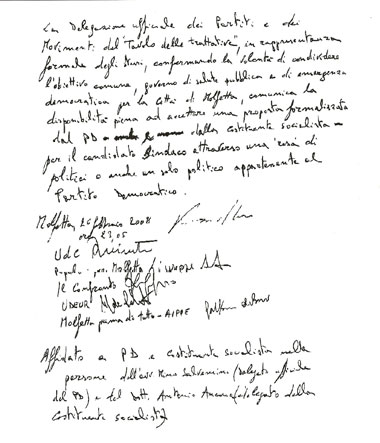 La Delegazione ufficiale dei Partiti e dei
Movimenti del "Tavolo delle trattative", in rappresentanza
formale degli stessi, confermando la volontà di condividere
l'obiettivo comune, governo di salute pubblica e di emergenza
democratica per la città di Molfetta, comunica la
disponibilità piena ad accettare una proposta formalizzata
dal PD e dalla costituente socialista
per il candidato Sindaco attraverso una rosa di
politici o anche un solo politico appartenente al
Partito Democratico.
Molfetta 26 febbraio 2008
ore 23,05
UdC
Popolari per Molfetta
Il Confronto
UDEUR
Molfetta prima di tutto - AIPPE
Affidato a PD e Costituente socialista nelle
persone dell'avv. Salvemini (delegato ufficiale
del PD) e del dott. Antonio (delegato della
Costituente socialista)